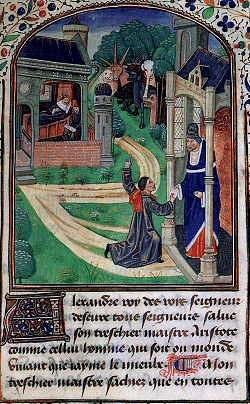 Alexandre roy des roys seigneur
desseure tous seigneurs salue
son treschier maistre Aristote
comme cellui homme qui soit ou monde
vivant que j'ayme le mieulx
A son
treschier maistre sachiez que en toutes